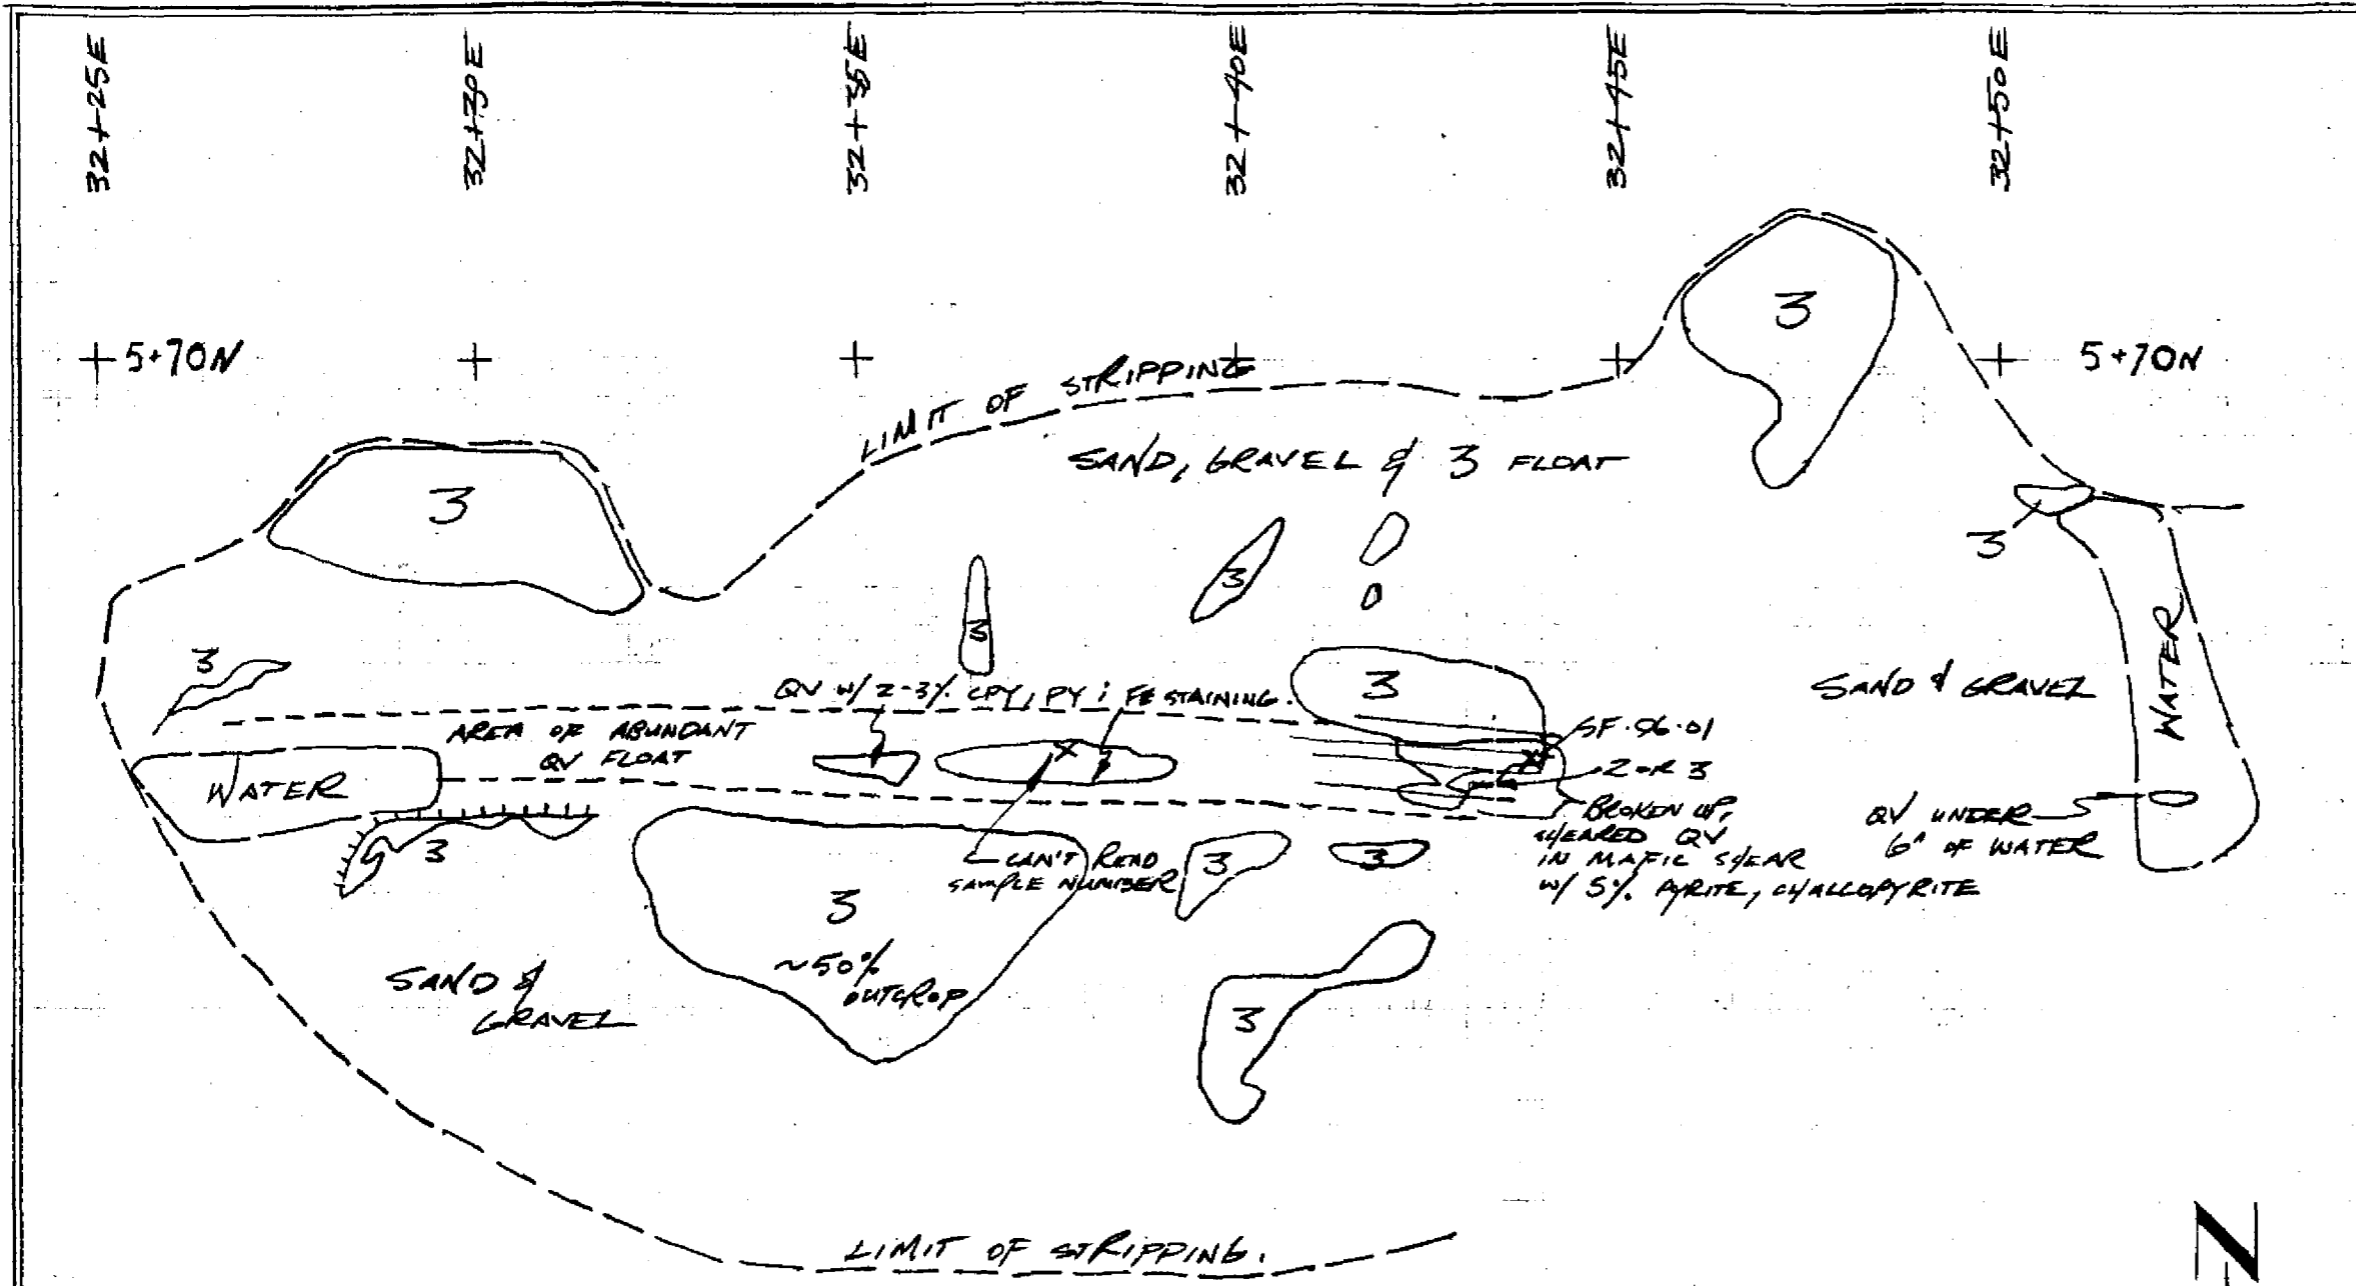 32+25E
32+30E
32+35E
32+40E
32+45E
32+50E
3
5+70N
5+70N
LIMIT OF STRIPPING
SAND, GRAVEL & 3 FLOAT
3
3
3
3
3
3
SAND & GRAVEL
WATER
QV W/ 2-3% CPY, PY & FE STAINING.
3
AREA OF ABUNDANT
QV FLOAT
SF-96-01
2 OR 3
WATER
BROKEN UP,
SHEARED QV
IN MAFIC SHEAR
W/ 5% PYRITE, CHALCOPYRITE
QV UNDER
6" OF WATER
3
CAN'T READ
SAMPLE NUMBER
3
3
3
~50%
OUTCROP
SAND &
GRAVEL
3
LIMIT OF STRIPPING.
N